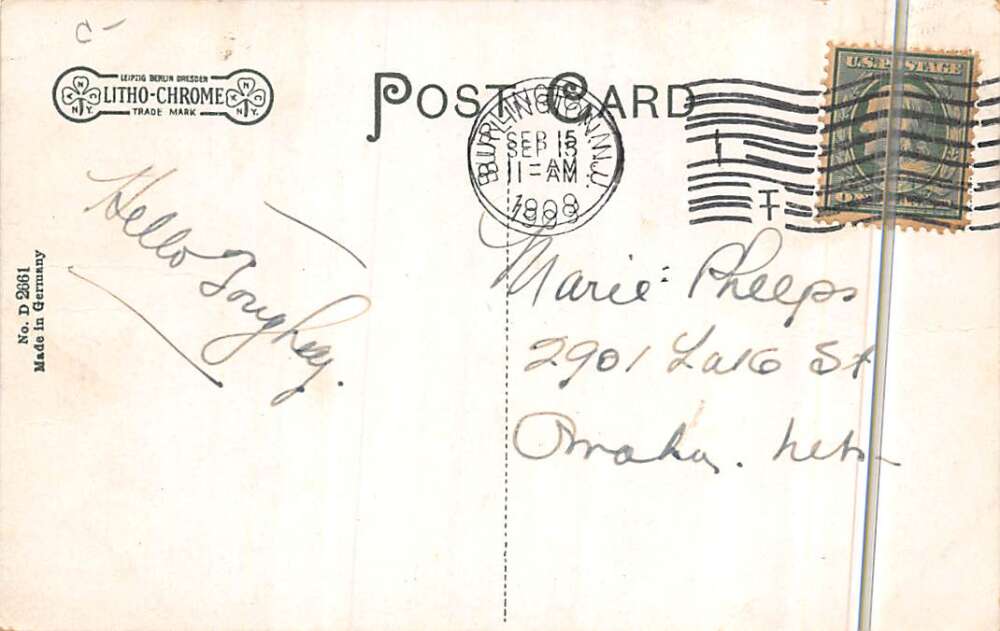 C-
LEIPZIG BERLIN DRESDEN
LITHO-CHROME
TRADE MARK
POST CARD
BURLINGTON N.J.
SEP 15
11-AM
1908
U.S. POSTAGE
Hello
No. D 2661
Made in Germany
Marie Phelps
2901 Lake St
Omaha. Neb